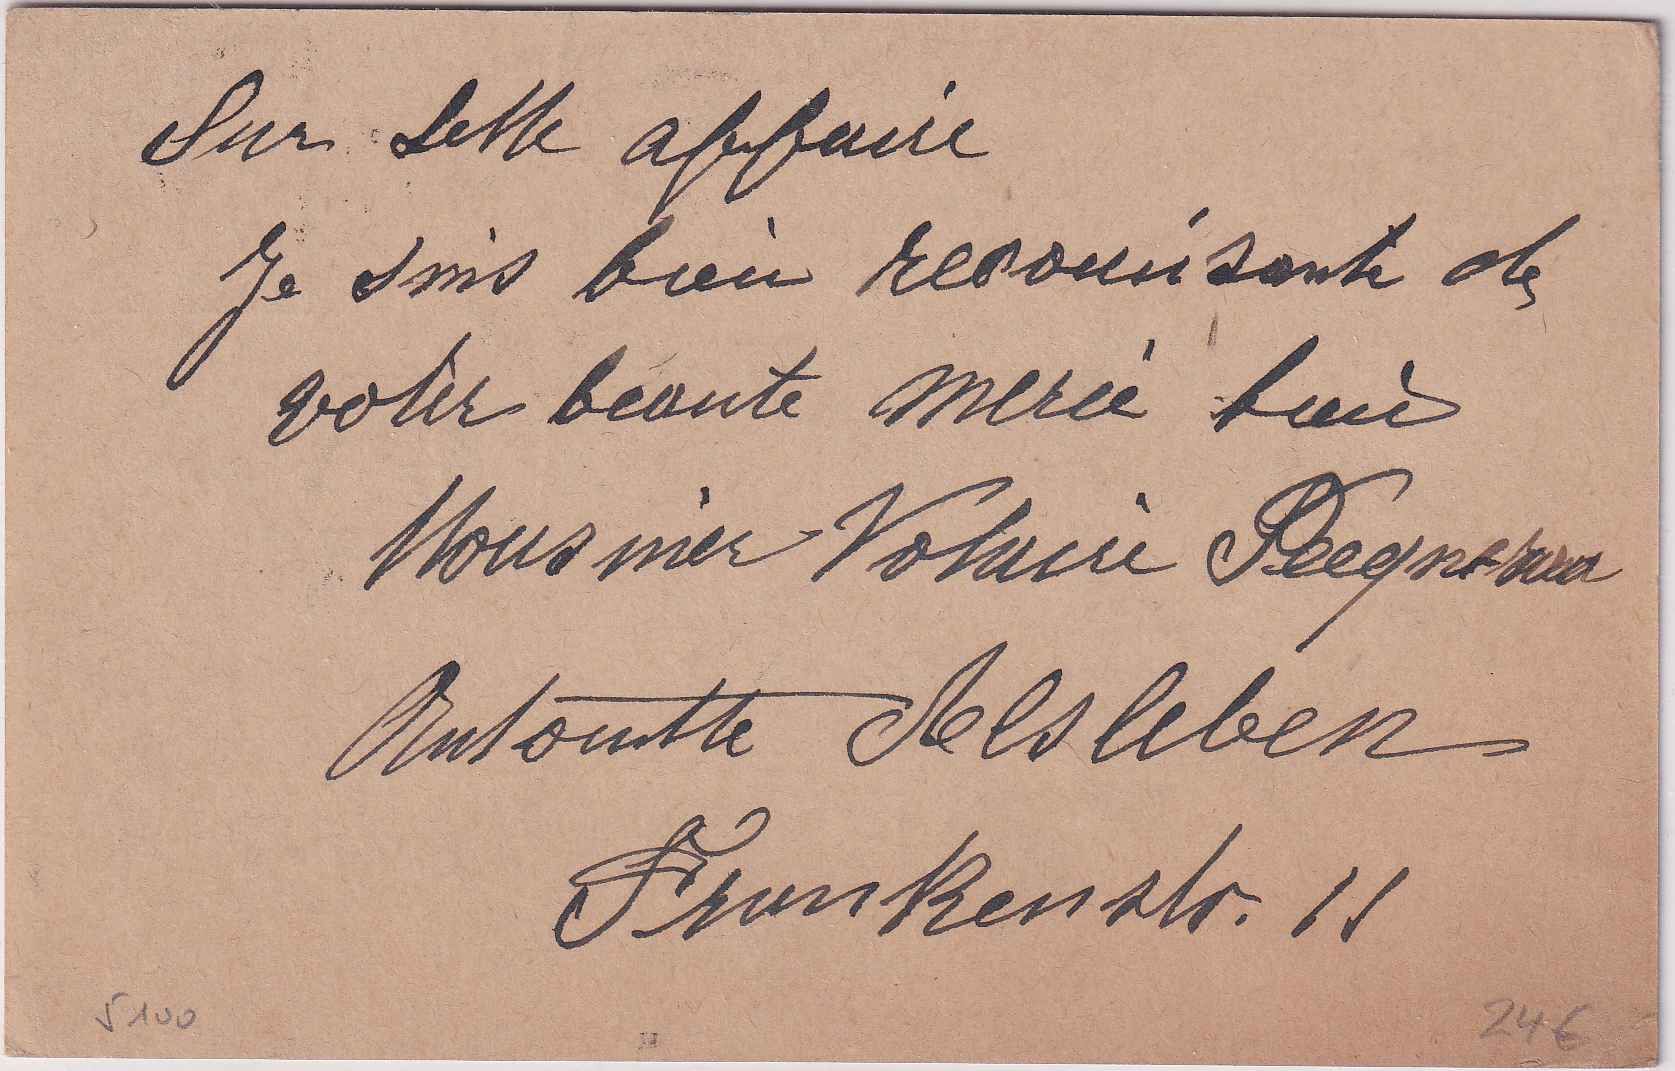 Sur Sette affaire
Je suis bien reconnisante de
votre beaute merie bien
Mousnier Votaire
Antoinette Alsleben
Frankenstr. 11
5100
24€